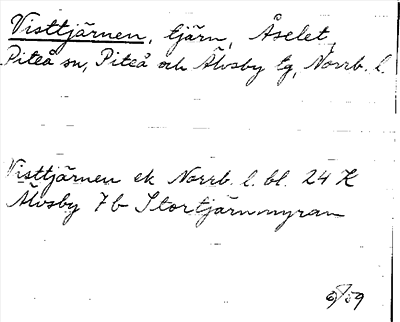 Visttjärnen, tjärn, Åselet,
Piteå sn, Piteå och Älvsby tg, Norrb. l.
Visttjärnen ek Norrb. l. bl. 24 K
Älvsby 7b Stortjärnmyran